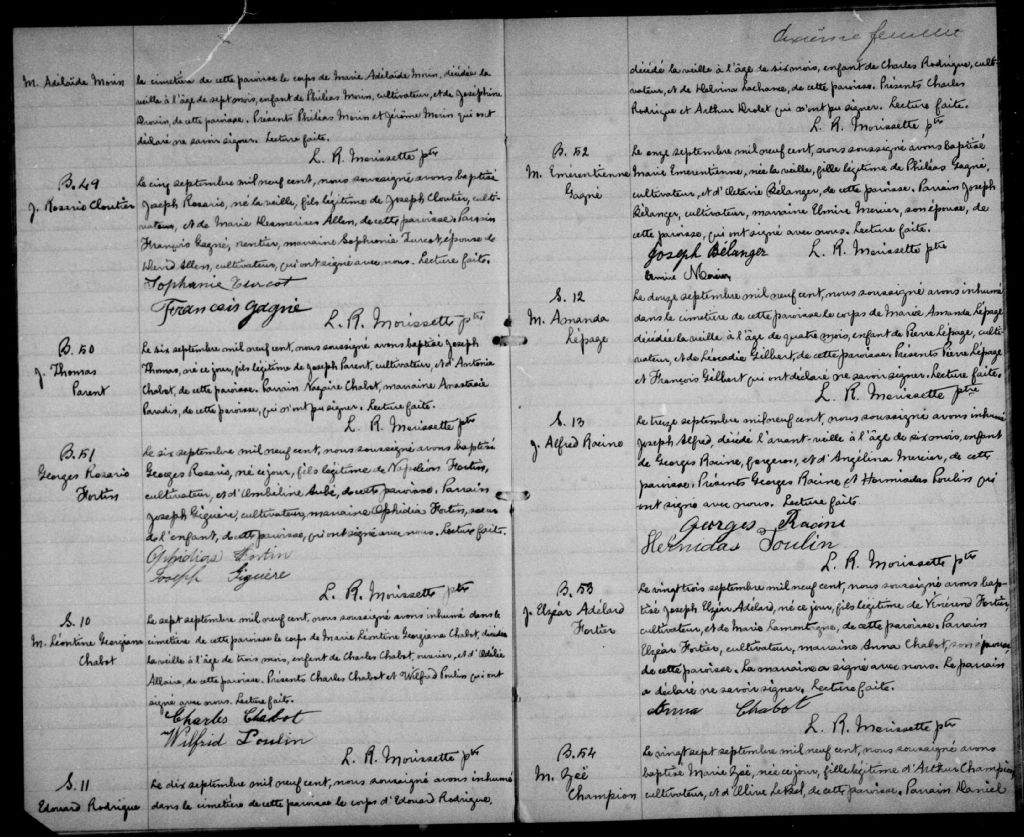 M. Adélaïde Morin
le cimetière de cette paroisse le corps de Marie Adélaïde Morin, décédée la
veille à l'âge de sept mois, enfant de Philéas Morin, cultivateur, et de Joséphine
Drouin, de cette paroisse. Présents Philéas Morin et Jérôme Morin qui ont
déclaré ne savoir signer. Lecture faite.
L. R. Morissette ptre
B. 49
J. Rosario Cloutier
Le cinq septembre mil neuf cent, nous soussigné avons baptisé
Joseph Rosario, né la veille, fils légitime de Joseph Cloutier, culti-
vateur, et de Marie Desmerises Allen, de cette paroisse. Parrain
François Gagné, rentier, marraine Sophronie Turcot, épouse de
David Allen, cultivateur, qui ont signé avec nous. Lecture faite.
Sophanie Turcot
Francois Gagné
L. R. Morissette ptre
B. 50
J. Thomas
Parent
Le six septembre mil neuf cent, nous soussigné avons baptisé Joseph
Thomas, né ce jour, fils légitime de Joseph Parent, cultivateur, et d'Antonia
Chabot, de cette paroisse. Parrain Nazaire Chabot, marraine Anastasie
Paradis, de cette paroisse, qui n'ont pu signer. Lecture faite.
L. R. Morissette ptre
B. 51
Georges Rosario
Fortin
Le six septembre mil neuf cent, nous soussigné avons baptisé
Georges Rosario, né ce jour, fils légitime de Napoléon Fortin,
cultivateur, et d'Ombéline Aubé, de cette paroisse. Parrain
Joseph Giguère, cultivateur, marraine Ophidias Fortin, sœur
de l'enfant, de cette paroisse, qui ont signé avec nous. Lecture faite.
Ophidias Fortin
Joseph Giguère
L. R. Morissette ptre
S. 10
M. Léontine Georgiana
Chabot
Le sept septembre mil neuf cent, nous soussigné avons inhumé dans le
cimetière de cette paroisse le corps de Marie Léontine Georgiana Chabot, décédée
la veille à l'âge de trois mois, enfant de Charles Chabot, ouvrier, et d'Odélie
Allaire, de cette paroisse. Présents Charles Chabot et Wilfrid Poulin qui ont
signé avec nous. Lecture faite.
Charles Chabot
Wilfrid Poulin
L. R. Morissette ptre
S. 11
Edouard Rodrigue
Le dix septembre mil neuf cent, nous soussigné avons inhumé
dans le cimetière de cette paroisse le corps d'Edouard Rodrigue,
feuillet
décédé la veille à l'âge de six mois, enfant de Charles Rodrigue, culti-
vateur, et de Delvina Lachance, de cette paroisse. Présents Charles
Rodrigue et Arthur Drolet qui n'ont pu signer. Lecture faite.
L. R. Morissette ptre
B. 52
M. Emerentienne
Gagné
Le onze septembre mil neuf cent, nous soussigné avons baptisé
Marie Emerentienne, née la veille, fille légitime de Philéas Gagné,
cultivateur, et d'Octavie Bélanger, de cette paroisse. Parrain Joseph
Bélanger, cultivateur, marraine Elmire Mercier, son épouse, de
cette paroisse, qui ont signé avec nous. Lecture faite.
Joseph Bélanger
L. R. Morissette ptre
Mercier
S. 12
M. Amanda
Lépage
Le douze septembre mil neuf cent, nous soussigné avons inhumé
dans le cimetière de cette paroisse le corps de Marie Amanda Lépage
décédée la veille à l'âge de quatre mois, enfant de Pierre Lépage, culti-
vateur, et de Léocadie Gilbert, de cette paroisse. Présents Pierre Lépage
et François Gilbert qui ont déclaré ne savoir signer. Lecture faite.
L. R. Morissette ptre
S. 13
J. Alfred Racine
Le treize septembre mil neuf cent, nous soussigné avons inhumé
Joseph Alfred, décédé l'avant-veille à l'âge de six mois, enfant
de Georges Racine, forgeron, et d'Angélina Mercier, de cette
paroisse. Présents Georges Racine et Hermidas Poulin qui
ont signé avec nous. Lecture faite.
Georges Racine
Hermidas Poulin
L. R. Morissette ptre
B. 53
J. Elzéar Adélard
Fortier
Le vingt trois septembre mil neuf cent, nous soussigné avons bap-
tisé Joseph Elzéar Adélard, né ce jour, fils légitime de Vénérend Fortier,
cultivateur, et de Marie Lamontagne, de cette paroisse. Parrain
Elzéar Fortier, cultivateur, marraine Anna Chabot, son épouse,
de cette paroisse. La marraine a signé avec nous. Le parrain
a déclaré ne savoir signer. Lecture faite.
Anna Chabot
L. R. Morissette ptre
B. 54
M. Zoë
Champion
Le vingt sept septembre mil neuf cent, nous soussigné avons
baptisé Marie Zoë, née ce jour, fille légitime d'Arthur Champion,
cultivateur, et d'Elvine de cette paroisse. Parrain Daniel